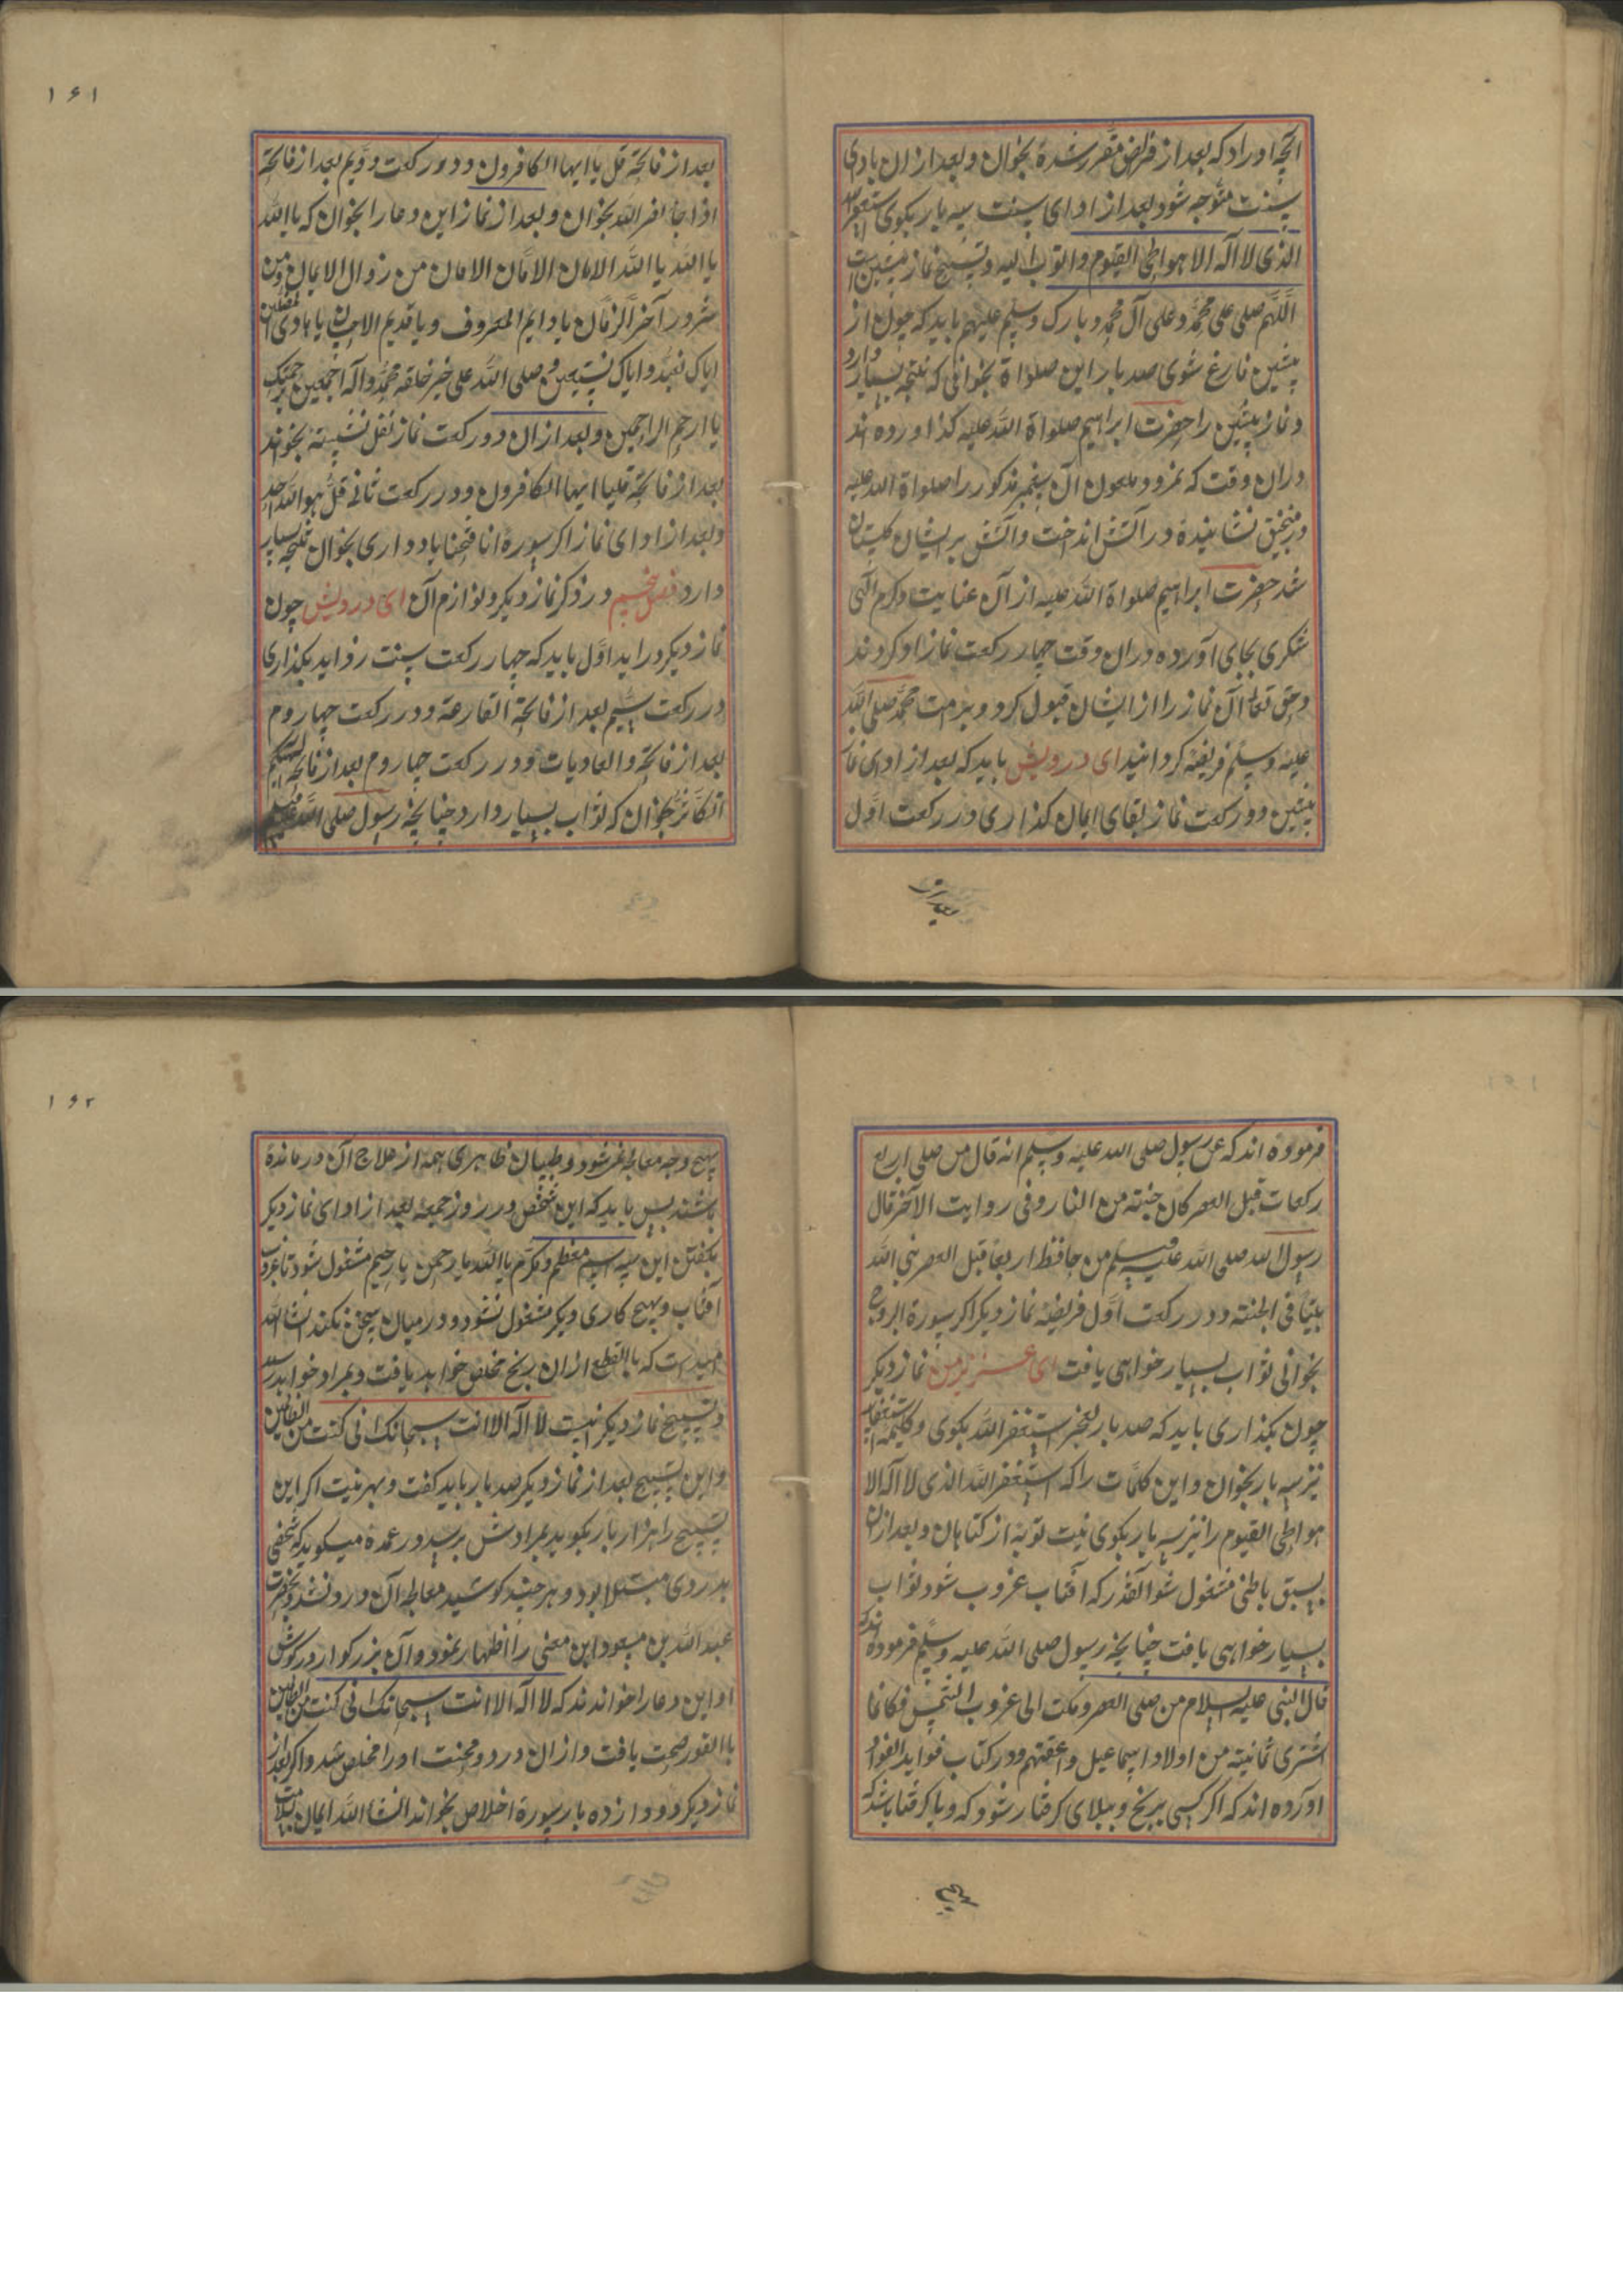 آنچه اوراد که بعد از فرایض مقرر شده بخوان و بعد از ان بادای
سنت متوجه شو و بعد از ادای سنت سه بار بکوی استغفرالله
الذی لا اله الا هو الحی القیوم و اتوب الیه و تسبیح نماز پیشین اینست
اللهم صلی علی محمد و علی آل محمد و بارک وسلم علیهم باید که چون از
پیشین فارغ شوی صد بار این صلواة بخوانی که نتیجه بسیار دارد
و نماز پیشین را حضرت ابراهیم صلواة الله علیه کذاورده اند
دران وقت که نمرود ملعون آن پیغمبر مذکور را صلواة الله علیه
در منجنیق نشانیده در آتش انداخت و آتش بر ایشان کلستان
شد حضرت ابراهیم صلواة الله علیه از آن عنایت و کرم الهی
شکری بجای آورده دران وقت چهار رکعت نماز ادا کردند
و حق تعالی آن نماز را از ایشان قبول کرد و بر امت محمد صلی الله
علیه وسلم فریضه کردانید ای درویش باید که بعد از ادای نماز
پیشین دو رکعت نماز بقای ایمان کذاری در رکعت اول
۱۶۱
بعد از فاتحه قل یا ایها الکافرون و در رکعت دویم بعد از فاتحه
اذا جا نصر الله بخوان و بعد از نماز این دعا را بخوان که یا الله
یا الله یا الله الامان الامان الامان من زوال الایمان ومن
شرور آخر الزمان یا دایم المعروف و یا قدیم الاحسان یا هادی المضلین
ایاک نعبد و ایاک نستعین و صلی الله علی خیر خلقه محمد و آله اجمعین برحمتک
یا ارحم الراحمین و بعد ازان دو رکعت نماز نفل نشسته بخواند
بعد از فاتحه قل یا ایها الکافرون و در رکعت ثانی قل هو الله احد
و بعد از ادای نماز اکر سوره انا فتحنا یاد داری بخوان نتیجه بسیار
دارد فصل پنجم در ذکر نماز دیکر و لوازم آن ای درویش چون
نماز دیکر دراید اول باید که چهار رکعت سنت زواید بکذاری
در رکعت سیم بعد از فاتحه القارعة و در رکعت چهاروم
بعد از فاتحه والعادیات و در رکعت چهاروم بعد از فاتحه الهیکم
التکاثر بخوان که ثواب بسیار دارد چنانچه رسول صلی الله علیه وسلم
فرموده اند که عن رسول صلی الله علیه وسلم انه قال من صلی اربع
رکعات قبل العصر کان جنته من النار و فی روایت الآخر قال
رسول الله صلی الله علیه وسلم من حافظ اربعا قبل العصر بنی الله
بیتا فی الجنته و در رکعت اول فریضه نماز دیکر اکر سورة البروج
بخوانی ثواب بسیار خواهی یافت ای عزیز من نماز دیکر
چون بکذاری باید که صد بار استغفر الله بکوی و کلیمه استغفار
نیز سه بار بخوان و این کلمات را که استغفر الله الذی لا اله الا
هو الحی القیوم را نیز سه بار بکوی نیت توبه از کناهان و بعد ازان
بسبق باطنی مشغول شو آنقدر که آفتاب غروب شود ثواب
بسیار خواهی یافت چنانچه رسول صلی الله علیه وسلم فرموده اند که
قال النبی علیه السلام من صلی العصر و مکث الی غروب الشمس فکانما
اشتری ثمانیته من اولاد اسماعیل و اعتقهم و در کتاب فواید الفواد
اورده اند که اکر کسی برنج و ببلای کرفتار شود که
۱۶۲
بهیچ وجه معالجه نمیشود و طبیبان ظاهری همه از علاج آن درمانده
باشند پس باید که این شخص در روز جمعه بعد از ادای نماز دیکر
بکفتن این سه اسم معظم و مکرم یا الله یا رحمن یا رحیم مشغول شود تا غروب
آفتاب و بهیچ کاری دیکر مشغول نشود و در میان سخن نکند انشاالله
امیدست که باالقطع ازان رنج مخلص خواهد یافت و بمراد خواهد رسید
و تسبیح نماز دیکر اینست لا اله الا انت سبحانک انی کنت من الظالمین
و این تسبیح بعد از نماز دیکر صد بار باید کفت و بهر نیت اکر این
تسبیح را هزار بار بکوید بمرادش برسد و در عمده میکوید که شخصی
بدردی مبتلا بود و هر چند کوشید معالجه آن درد نشد بحضرت
عبد الله بن مسعود این معنی را اظهار نمود و آن بزرکوار در کوش
او این دعا را خواندند که لا اله الا انت سبحانک انی کنت من الظالمین
باالفور صحت یافت و ازان درد و محنت اورا مخلص شد و اکر بعد از
نماز دیکر دووازده بار سورة اخلاص بخواند انشا الله ایمان بسلامت